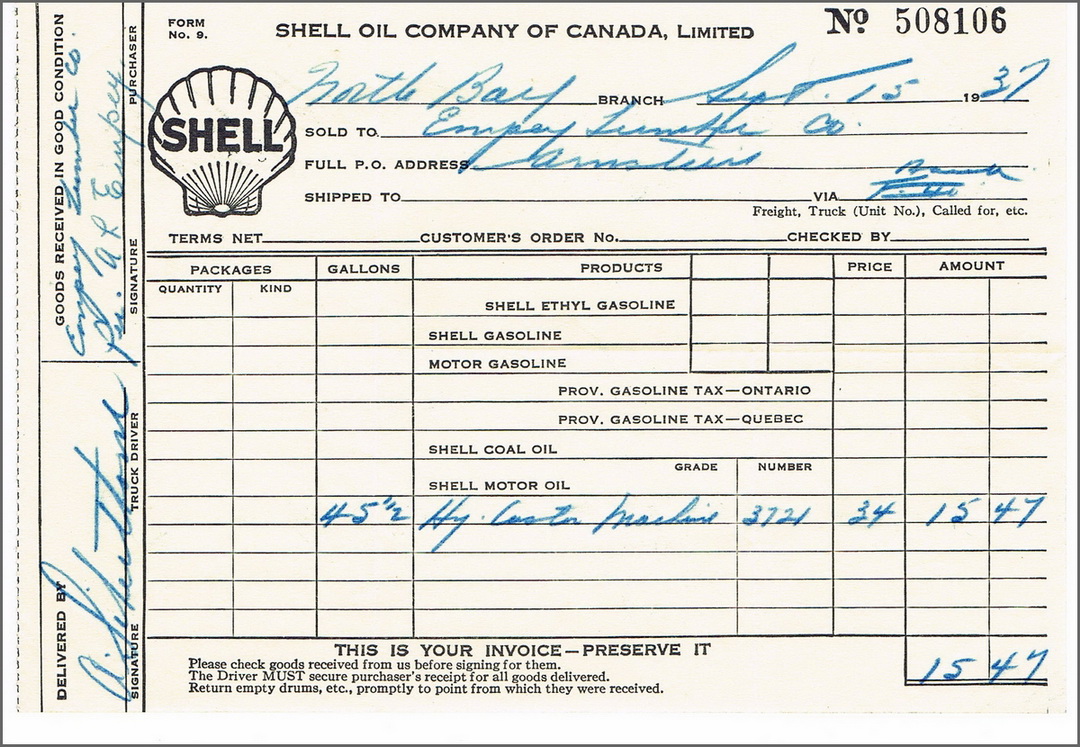 FORM No. 9.
SHELL OIL COMPANY OF CANADA, LIMITED
No 508106
SHELL
North Bay BRANCH Sept. 15 1937
SOLD TO Empey Lumber Co.
FULL P.O. ADDRESS
SHIPPED TO VIA
Freight, Truck (Unit No.), Called for, etc.
TERMS NET CUSTOMER'S ORDER No. CHECKED BY
PACKAGES GALLONS PRODUCTS PRICE AMOUNT
QUANTITY KIND
SHELL ETHYL GASOLINE
SHELL GASOLINE
MOTOR GASOLINE
PROV. GASOLINE TAX—ONTARIO
PROV. GASOLINE TAX—QUEBEC
SHELL COAL OIL
GRADE NUMBER
SHELL MOTOR OIL
45 1/2 Hy. Castor Machine 3721 34 15 47
THIS IS YOUR INVOICE—PRESERVE IT
Please check goods received from us before signing for them.
The Driver MUST secure purchaser's receipt for all goods delivered.
Return empty drums, etc., promptly to point from which they were received.
15 47
GOODS RECEIVED IN GOOD CONDITION
Empey Lumber Co.
Per. A R Empey
SIGNATURE PURCHASER
DELIVERED BY
SIGNATURE TRUCK DRIVER